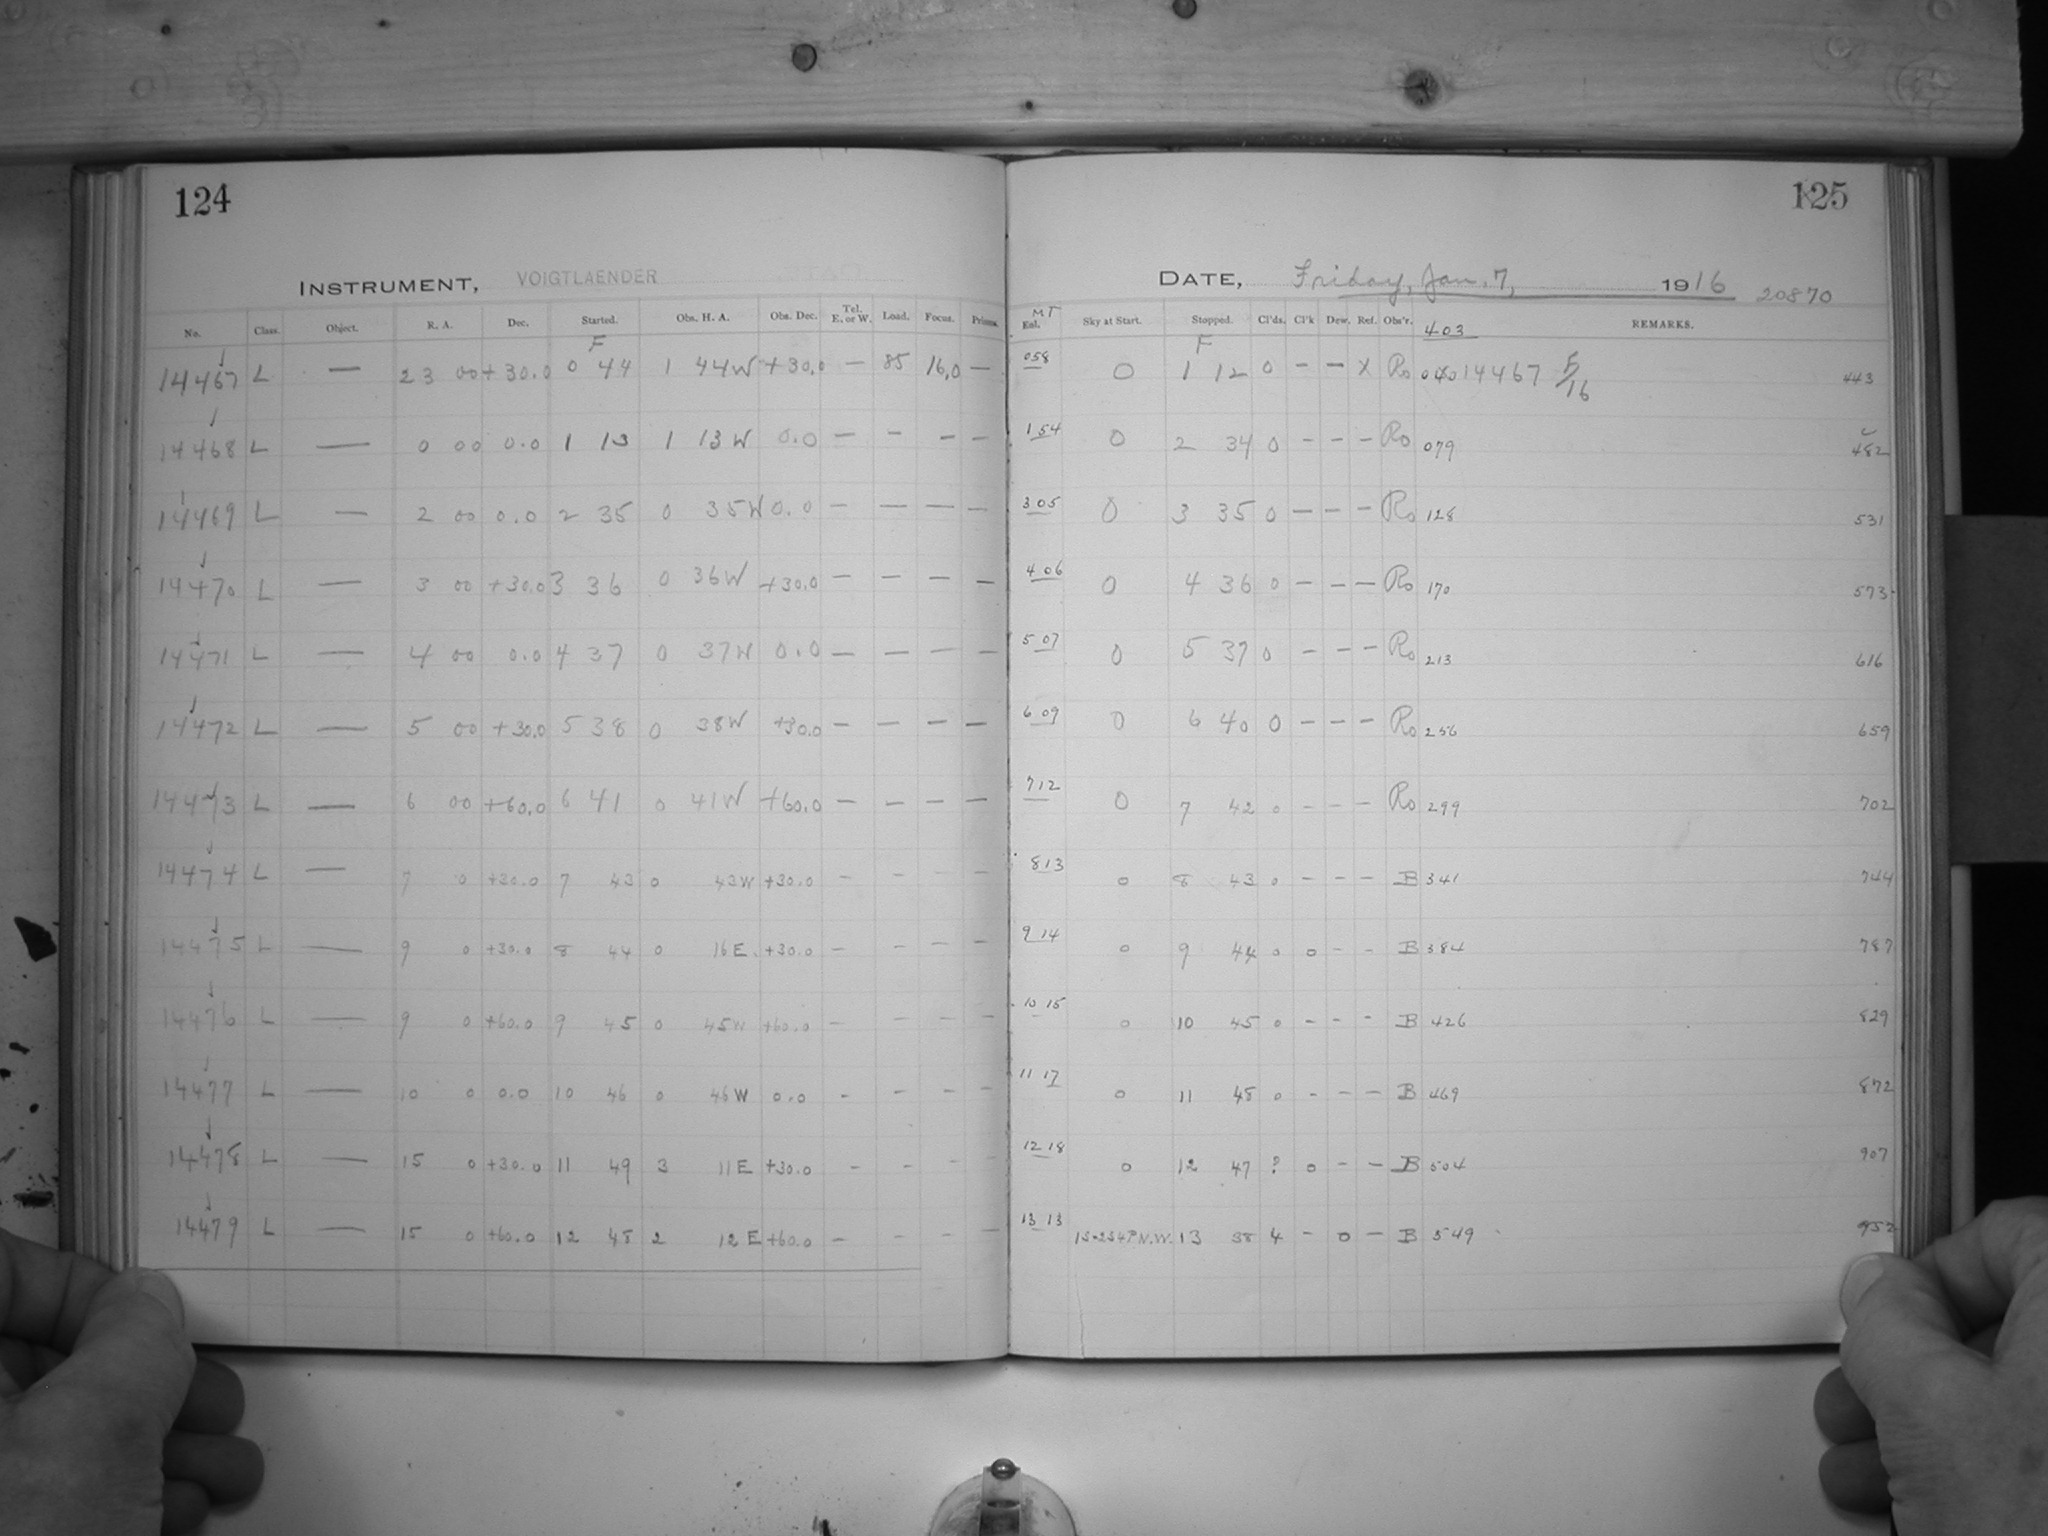 124
125
INSTRUMENT, VOIGTLAENDER
DATE, Friday, Jan. 7, 1916 20870
No. Class. Object. R. A. Dec. Started. Obs. H. A. Obs. Dec. Tel. E. or W. Load. Focus. Prisms. MT Eol. Sky at Start. Stopped. Cl'ds. Cl'k Dew. Ref. Obs'r. 403 REMARKS.
F F
14467 L — 23 00 +30.0 0 44 1 44W +30.0 — 85 16.0 — 058 0 1 12 0 – – X Ro 14467 5/16 443
14468 L — 0 00 0.0 1 13 1 13W 0.0 – – – – 1 54 0 2 34 0 – – – Ro 079 482
14469 L — 2 00 0.0 2 35 0 35W 0.0 – – – – 3 05 0 3 35 0 – – – Ro 128 531
14470 L — 3 00 +30.0 3 36 0 36W +30.0 – – – – 4 06 0 4 36 0 – – – Ro 170 573
14471 L — 4 00 0.0 4 37 0 37W 0.0 – – – – 5 07 0 5 37 0 – – – Ro 213 616
14472 L — 5 00 +30.0 5 38 0 38W +30.0 – – – – 6 09 0 6 40 0 – – – Ro 256 659
14473 L — 6 00 +60.0 6 41 0 41W +60.0 – – – – 7 12 0 7 42 0 – – – Ro 299 702
14474 L — 7 0 +30.0 7 43 0 43W +30.0 – – – – 8 13 0 8 43 0 – – – B 341 744
14475 L — 9 0 +30.0 8 44 0 16E. +30.0 – – – – 9 14 0 9 44 0 0 – – B 384 787
14476 L — 9 0 +60.0 9 45 0 45W +60.0 – – – – 10 15 0 10 45 0 – – – B 426 829
14477 L — 10 0 0.0 10 46 0 46W 0.0 – – – – 11 17 0 11 48 0 – – – B 469 872
14478 L — 15 0 +30.0 11 49 3 11E +30.0 – – – – 12 18 0 12 47 ? 0 – – B 504 907
14479 L — 15 0 +60.0 12 48 2 12E +60.0 – – – – 13 13 N.W. 13 38 4 – 0 – B 549 952